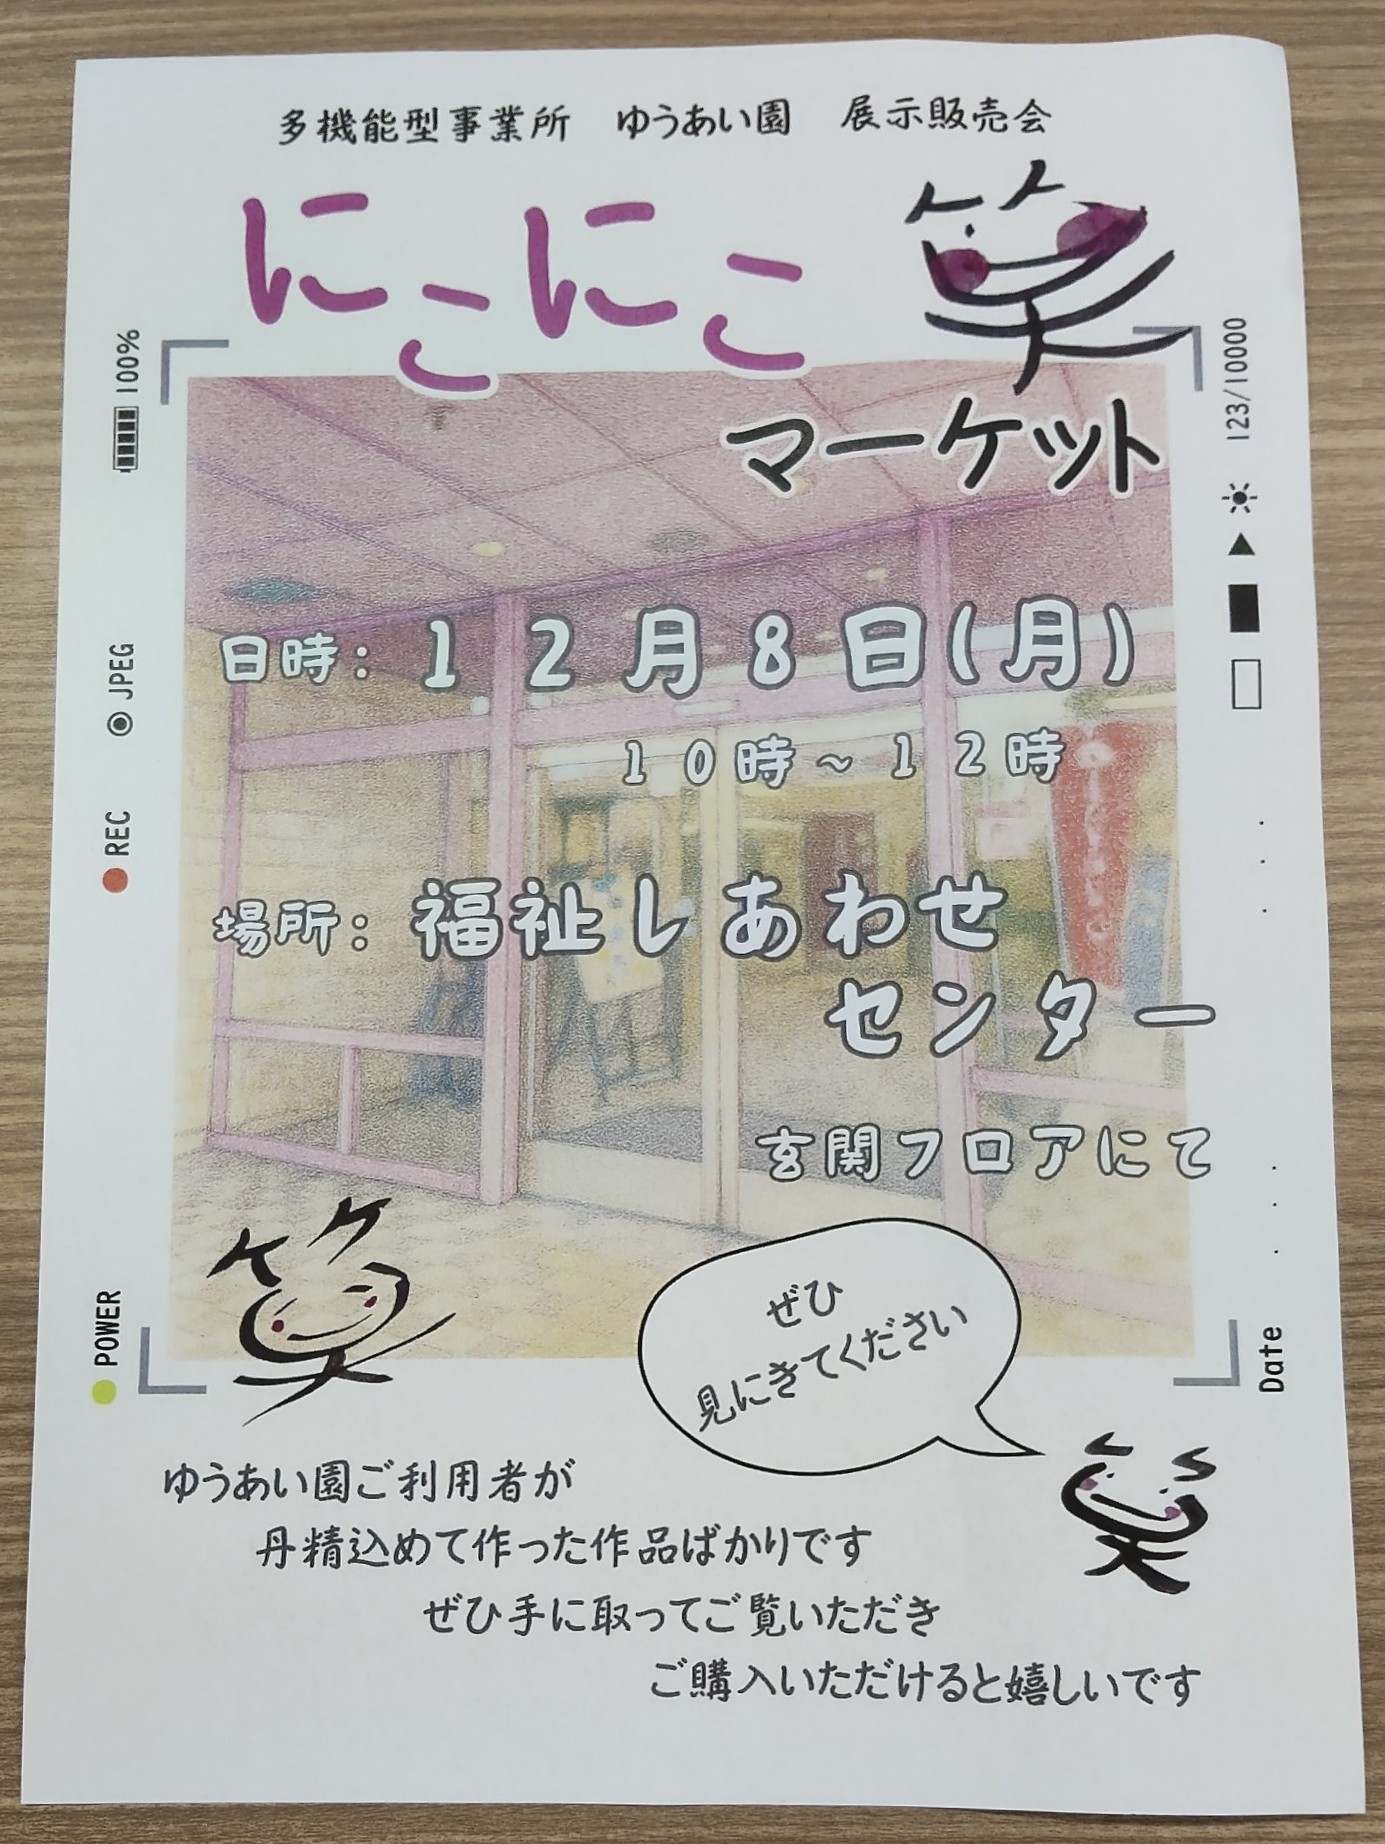 多機能型事業所　ゆうあい園　展示販売会
にこにこ 笑
マーケット
100%
JPEG
REC
POWER
123/10000
Date
日時：１２月８日(月)
１０時～１２時
場所：福祉しあわせ
センター
玄関フロアにて
笑
ぜひ
見にきてください
笑
ゆうあい園ご利用者が
丹精込めて作った作品ばかりです
ぜひ手に取ってご覧いただき
ご購入いただけると嬉しいです